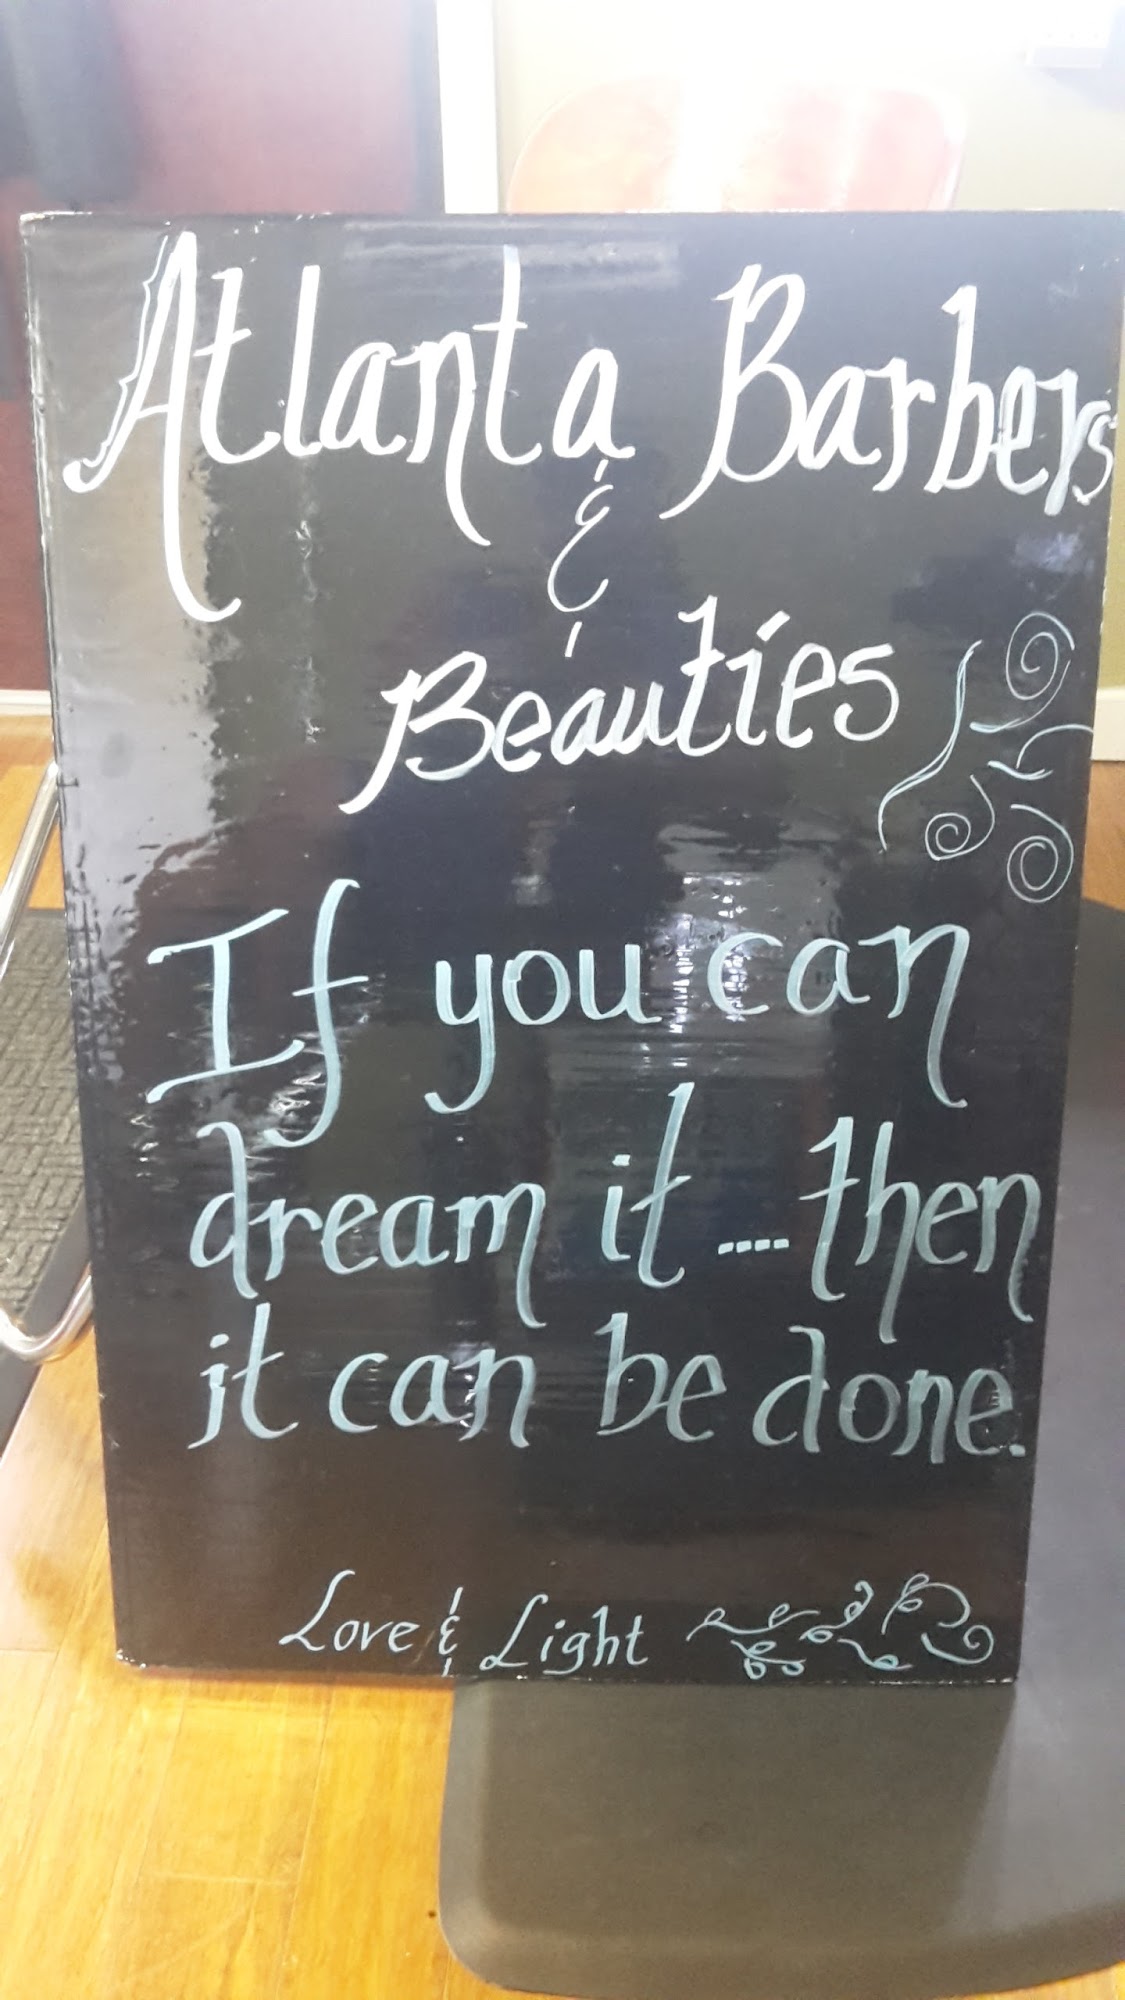 Atlanta Barbers
&
Beauties
If you can
dream it ....then
it can be done.
Love & Light